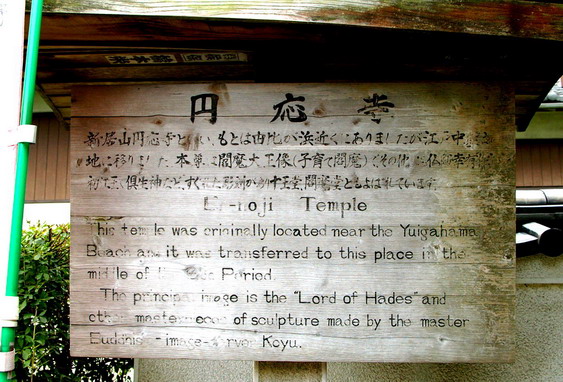 円応寺
新居山円応寺といい、もとは由比が浜近くにありましたが江戸中期
地に移りました。本尊は閻魔大王像（子育て閻魔）でその他に仏師幸有
初江王、倶生神など、すぐれた彫刻があり十王堂、閻魔堂ともよばれています。
En-noji Temple
This temple was originally located near the Yuigahama
Beach and it was transferred to this place in the
middle of the Edo Period.
The principal image is the "Lord of Hades" and
other masterpieces of sculpture made by the master
Buddhist-image-carver Koyu.